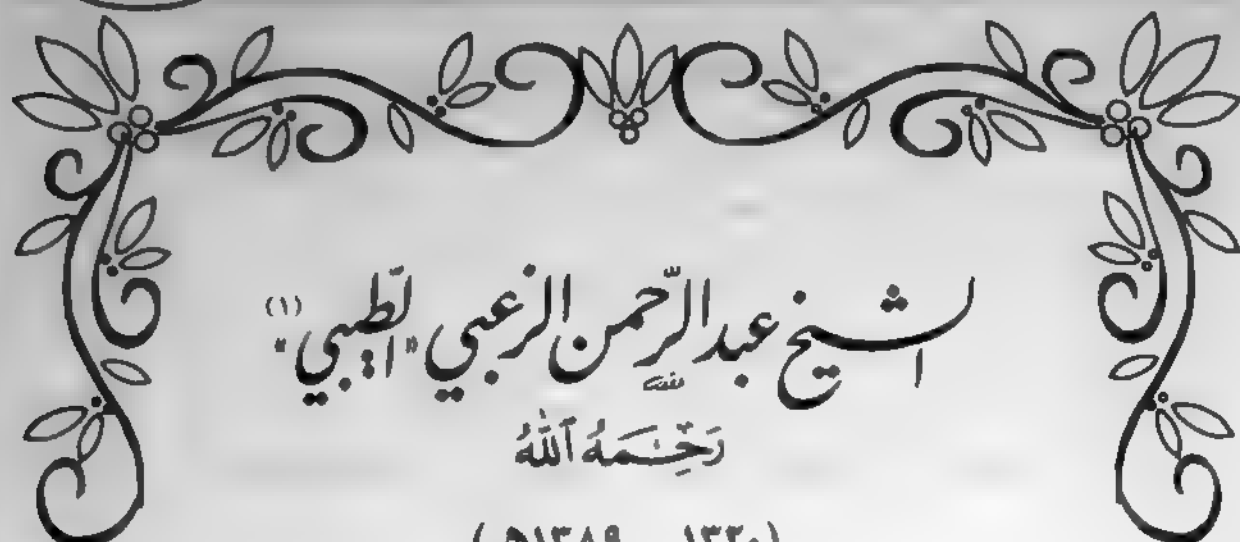 الشيخ عبد الرّحمن الزعبي «الطّيبي» (١)
رَحِمَهُ ٱللَّهُ
(١٣٢٠ - ١٣٨٩هـ)